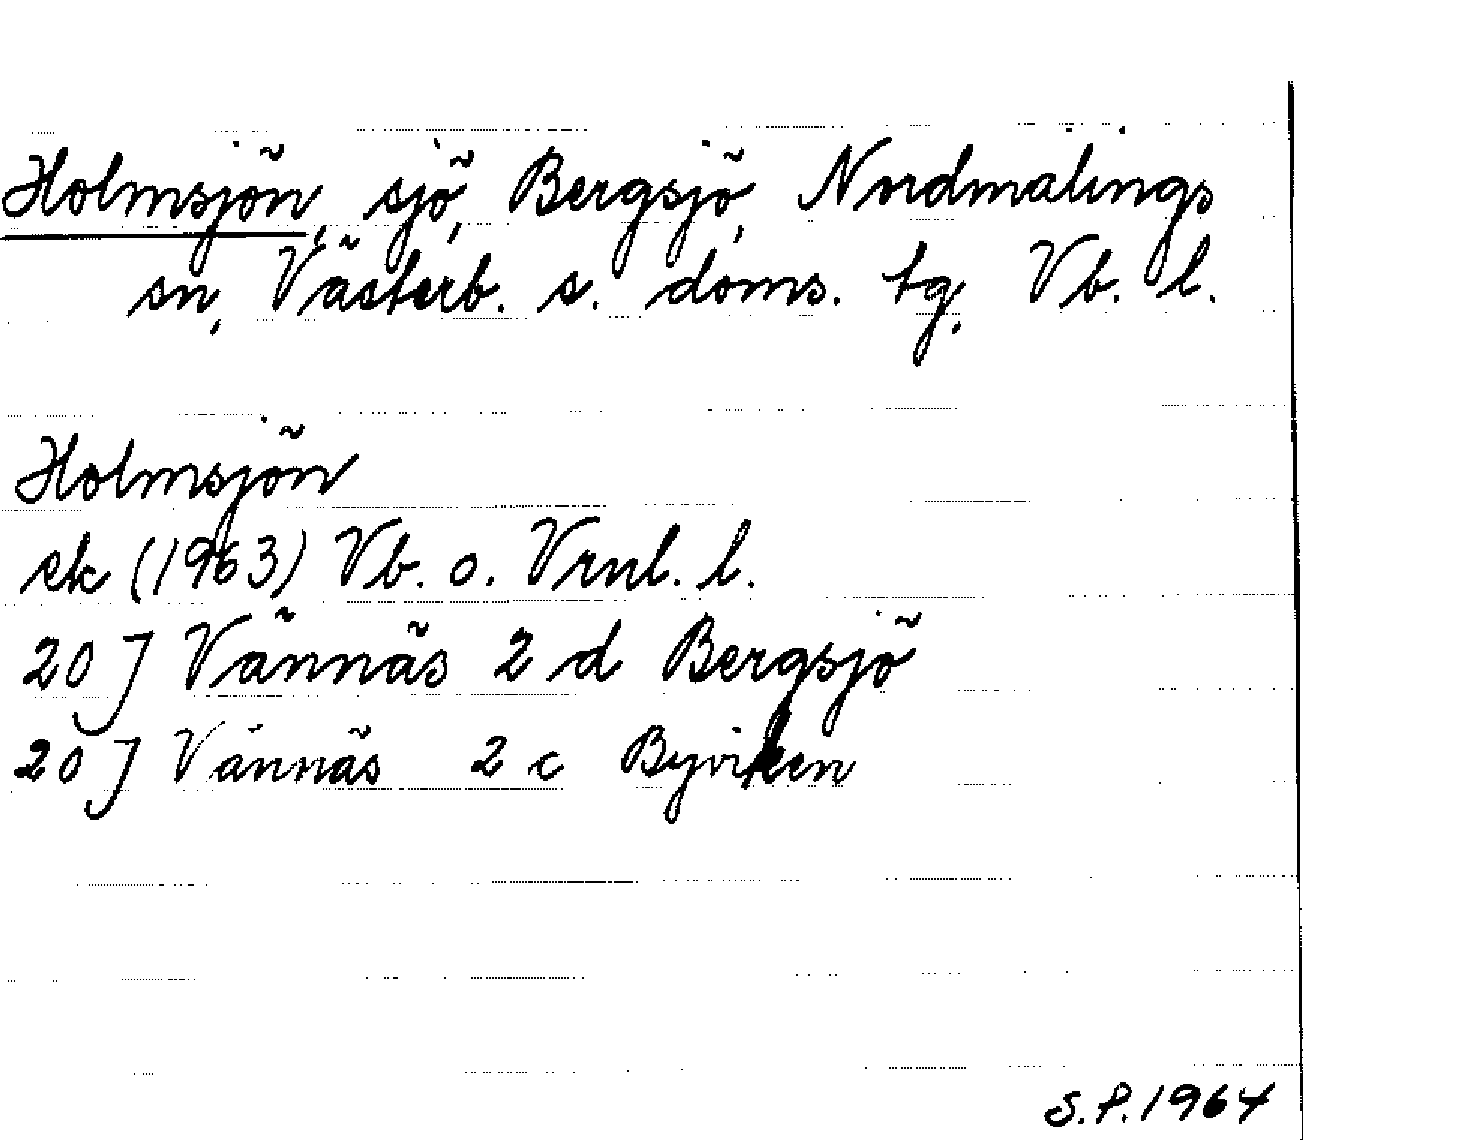 Holmsjön, sjö, Bergsjö, Nordmalings
sn, Västerb. s. doms. tg. Vb. l.
Holmsjön
ek (1963) Vb. o. Vrnl. l.
20 J Vännäs 2 d Bergsjö
20 J Vännäs 2 c Byviken
S.P. 1964